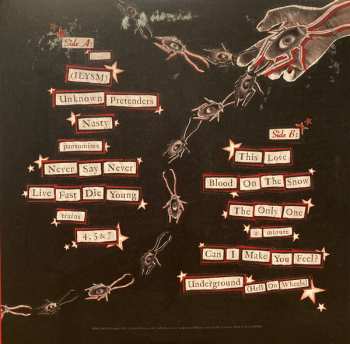 Side A:
(ILYSM)
Unknown Pretenders
Nasty
pantomimes
Never Say Never
Live Fast Die Young
trains
4, 5 & 7
Side B:
This Love
Blood On The Snow
The Only One
a minute
Can I Make You Feel?
Underground (Hell On Wheels)